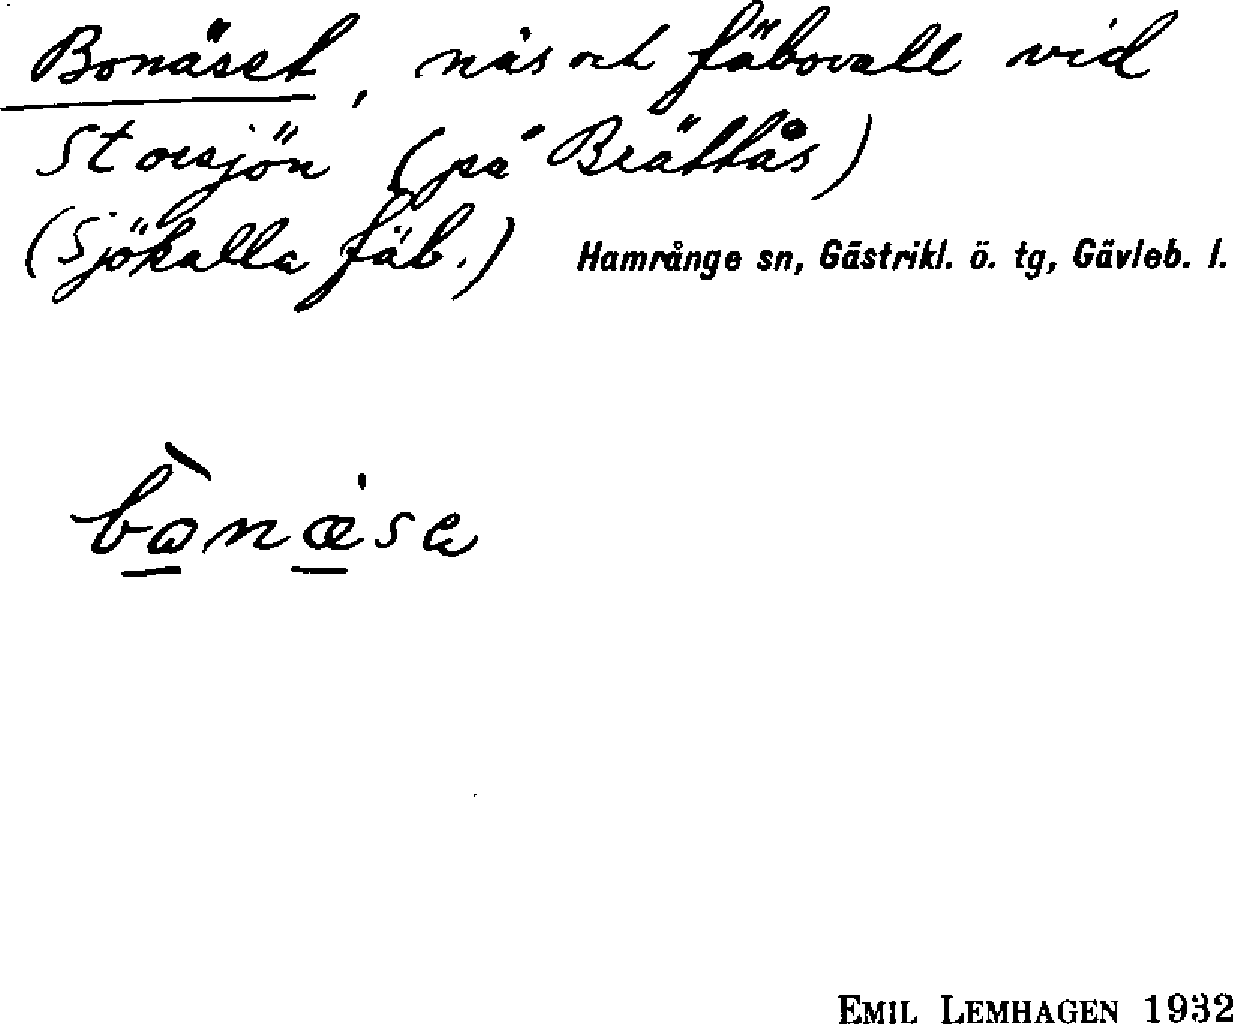 Bonäset, näs och fäbovall vid
Storsjön (på Brättås)
(Sjökalla fäb.) Hamrånge sn, Gästrikl. ö. tg, Gävleb. l.
bònæ̇sə
EMIL LEMHAGEN 1932